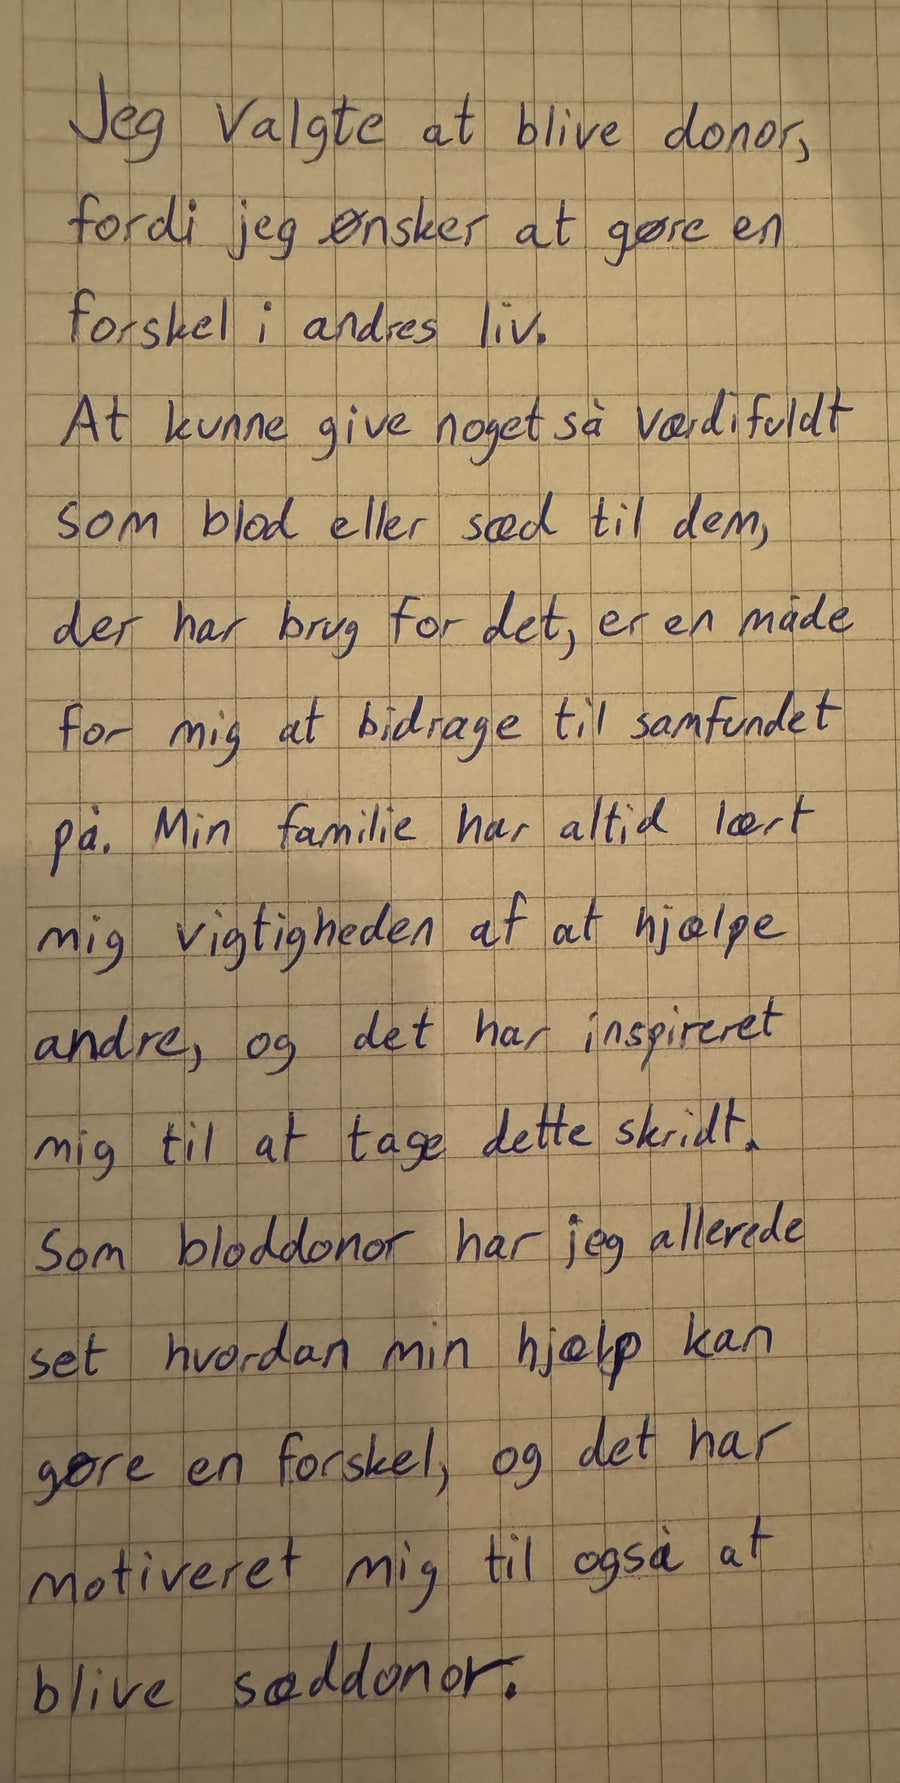 Jeg valgte at blive donor,
fordi jeg ønsker at gøre en
forskel i andres liv.
At kunne give noget så værdifuldt
som blod eller sæd til dem,
der har brug for det, er en måde
for mig at bidrage til samfundet
på. Min familie har altid lært
mig vigtigheden af at hjælpe
andre, og det har inspireret
mig til at tage dette skridt.
Som bloddonor har jeg allerede
set hvordan min hjælp kan
gøre en forskel, og det har
motiveret mig til også at
blive sæddonor.